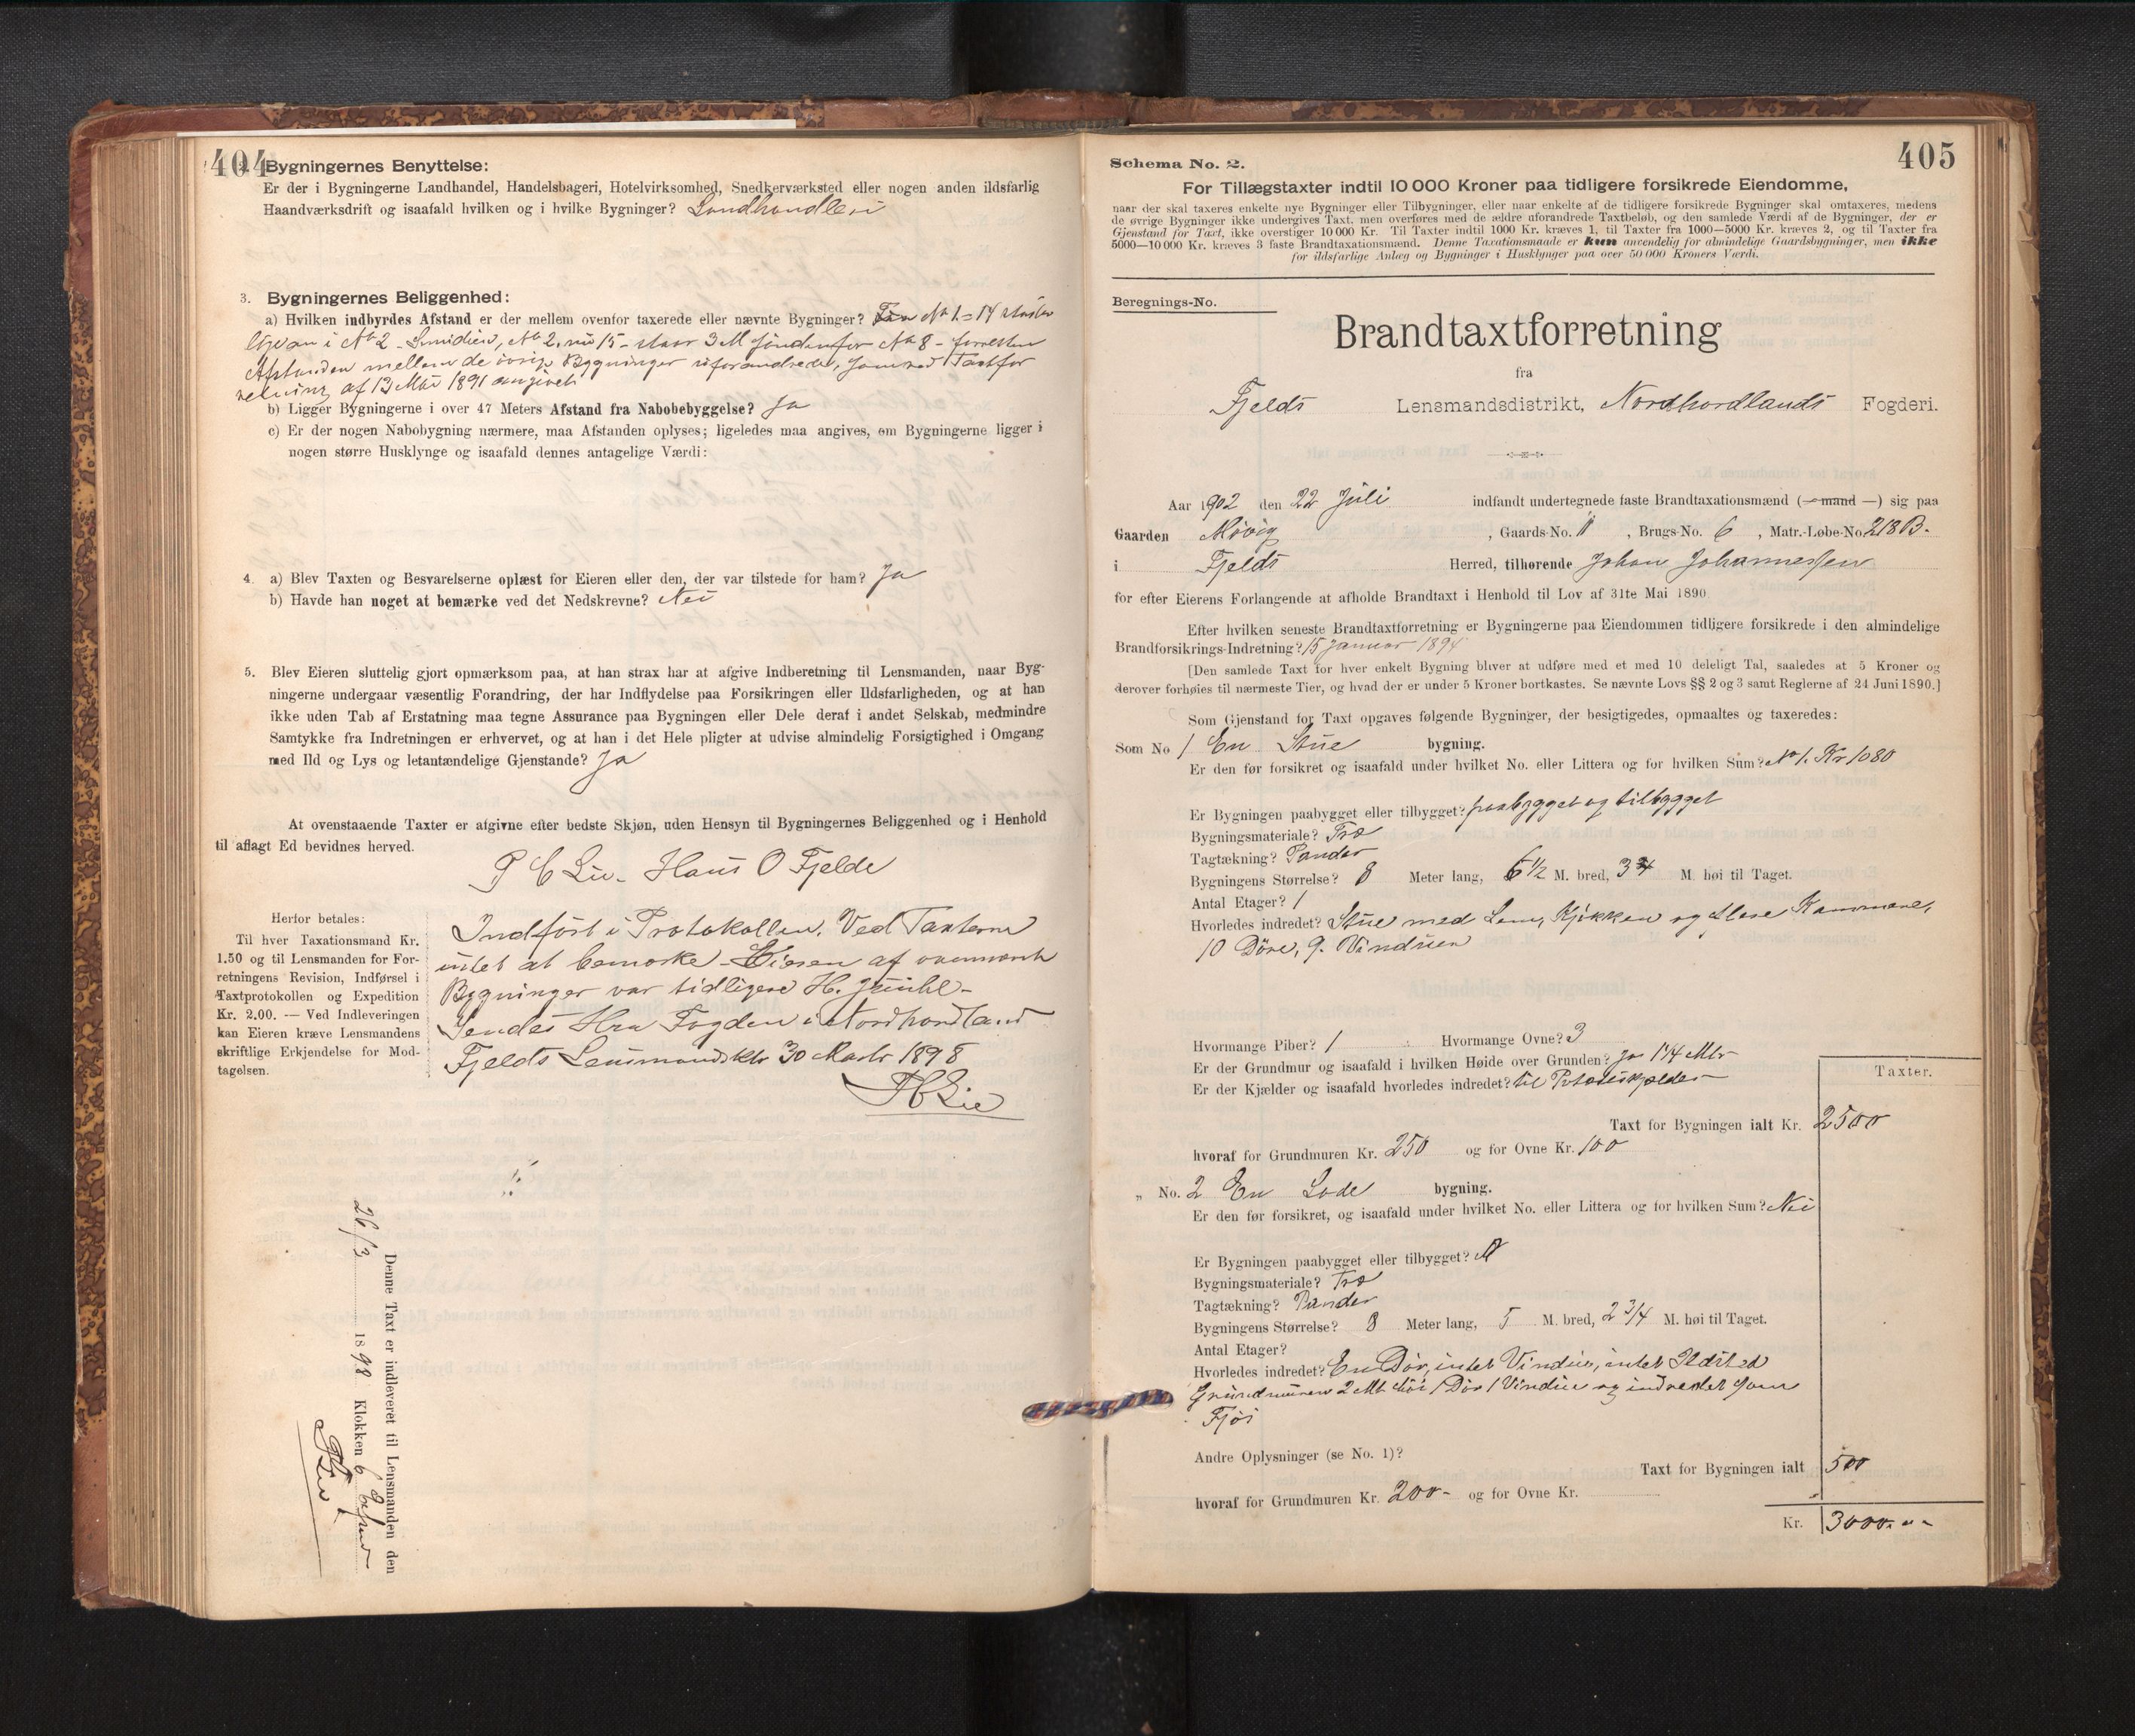 404
2. Bygningernes Benyttelse:
Er der i Bygningerne Landhandel, Handelsbageri, Hotelvirksomhed, Snedkerværksted eller nogen anden ildsfarlig
Haandværksdrift og isaafald hvilken og i hvilke Bygninger? Landhandleri
3. Bygningernes Beliggenhed:
a) Hvilken indbyrdes Afstand er der mellem ovenfor taxerede eller nævnte Bygninger? No 1 = 14 støder
No 2 - Smidien, No 2, nu 15 - staar 3 M No 8 - forresten
Afstanden mellem de øvrige Bygninger uforandrede, som ved Taxtfor
retning af 13 Mai 1891 angivet
b) Ligger Bygningerne i over 47 Meters Afstand fra Nabobebyggelse? Ja
c) Er der nogen Nabobygning nærmere, maa Afstanden oplyses; ligeledes maa angives, om Bygningerne ligger i
nogen større Husklynge og isaafald dennes antagelige Værdi:
4. a) Blev Taxten og Besvarelserne oplæst for Eieren eller den, der var tilstede for ham? Ja
b) Havde han noget at bemærke ved det Nedskrevne? Nei
5. Blev Eieren sluttelig gjort opmærksom paa, at han strax har at afgive Indberetning til Lensmanden, naar Byg-
ningerne undergaar væsentlig Forandring, der har Indflydelse paa Forsikringen eller Ildsfarligheden, og at han
ikke uden Tab af Erstatning maa tegne Assurance paa Bygningen eller Dele deraf i andet Selskab, medmindre
Samtykke fra Indretningen er erhvervet, og at han i det Hele pligter at udvise almindelig Forsigtighed i Omgang
med Ild og Lys og letantændelige Gjenstande? Ja
At ovenstaaende Taxter er afgivne efter bedste Skjøn, uden Hensyn til Bygningernes Beliggenhed og i Henhold
til aflagt Ed bevidnes herved.
P C Lie. Hans O Fjelde
Herfor betales:
Til hver Taxationsmand Kr.
1.50 og til Lensmanden for For-
retningens Revision, Indførsel i
Taxtprotokollen og Expedition
Kr. 2.00. — Ved Indleveringen
kan Eieren kræve Lensmandens
skriftlige Erkjendelse for Mod-
tagelsen.
Indført i Protokollen. Ved Taxterne
intet at bemærke - Eieren af ovennævnte
Bygninger var tidligere H. Juuhl -
Sendes Hrr Fogden i Nordhordland
Fjelds Lensmandsktr 30 Marts 1898
Lie
Denne Taxt er indleveret til Lensmanden den
26/3 1898 Klokken 6
Lie
405
Schema No. 2.
For Tillægstaxter indtil 10 000 Kroner paa tidligere forsikrede Eiendomme,
naar der skal taxeres enkelte nye Bygninger eller Tilbygninger, eller naar enkelte af de tidligere forsikrede Bygninger skal omtaxeres, medens
de øvrige Bygninger ikke undergives Taxt, men overføres med de ældre uforandrede Taxtbeløb, og den samlede Værdi af de Bygninger, der er
Gjenstand for Taxt, ikke overstiger 10 000 Kr. Til Taxter indtil 1000 Kr. kræves 1, til Taxter fra 1000—5000 Kr. kræves 2, og til Taxter fra
5000—10 000 Kr. kræves 3 faste Brandtaxationsmænd. Denne Taxationsmaade er kun anvendelig for almindelige Gaardsbygninger, men ikke
for ildsfarlige Anlæg og Bygninger i Husklynger paa over 50 000 Kroners Værdi.
Beregnings-No.
Brandtaxtforretning
fra
Fjelds Lensmandsdistrikt, Nordhordlands Fogderi.
Aar 1902 den 22 Juli indfandt undertegnede faste Brandtaxationsmænd (— mand —) sig paa
Gaarden Møvig, Gaards-No. 11, Brugs-No. 6, Matr.-Løbe-No. 218 B.
i Fjelds Herred, tilhørende Johan Johannessen
for efter Eierens Forlangende at afholde Brandtaxt i Henhold til Lov af 31te Mai 1890.
Efter hvilken seneste Brandtaxtforretning er Bygningerne paa Eiendommen tidligere forsikrede i den almindelige
Brandforsikrings-Indretning? 15 Januar 1894
[Den samlede Taxt for hver enkelt Bygning bliver at udføre med et med 10 deleligt Tal, saaledes at 5 Kroner og
derover forhøies til nærmeste Tier, og hvad der er under 5 Kroner bortkastes. Se nævnte Lovs §§ 2 og 3 samt Reglerne af 24 Juni 1890.]
Som Gjenstand for Taxt opgaves følgende Bygninger, der besigtigedes, opmaaltes og taxeredes:
Som No 1 En Stue bygning.
Er den før forsikret og isaafald under hvilket No. eller Littera og for hvilken Sum? No 1. Kr 1080
Er Bygningen paabygget eller tilbygget? paabygget og tilbygget
Bygningsmateriale? Træ
Tagtækning? Pander
Bygningens Størrelse? 8 Meter lang, 6 1/2 M. bred, M. høi til Taget.
Antal Etager? 1
Hvorledes indredet? Stue med Lem, Kjøkken og flere Kammere,
10 Døre, 9. Vinduer
Hvormange Piber? 1 Hvormange Ovne? 3
Er der Grundmur og isaafald i hvilken Høide over Grunden? Ja 1 1/4 Mtr
Er der Kjælder og isaafald hvorledes indredet? til Potetkjelder
Taxter.
Taxt for Bygningen ialt Kr. 2500
hvoraf for Grundmuren Kr. 250 og for Ovne Kr. 100
„ No. 2 En Lade bygning.
Er den før forsikret, og isaafald under hvilket No. eller Littera og for hvilken Sum? Nei
Er Bygningen paabygget eller tilbygget? N
Bygningsmateriale? Træ
Tagtækning? Pander
Bygningens Størrelse? 8 Meter lang, 5 M. bred, 2 3/4 M. høi til Taget.
Antal Etager?
Hvorledes indredet? En Dør, intet Vindue, intet Ildsted
Grundmuren 2 Mtr høi 1 Dør 1 Vindue og indredet som
Fjøs
Andre Oplysninger (se No. 1)?
Taxt for Bygningen ialt 500
hvoraf for Grundmuren Kr. 200- og for Ovne Kr.
Kr. 3000